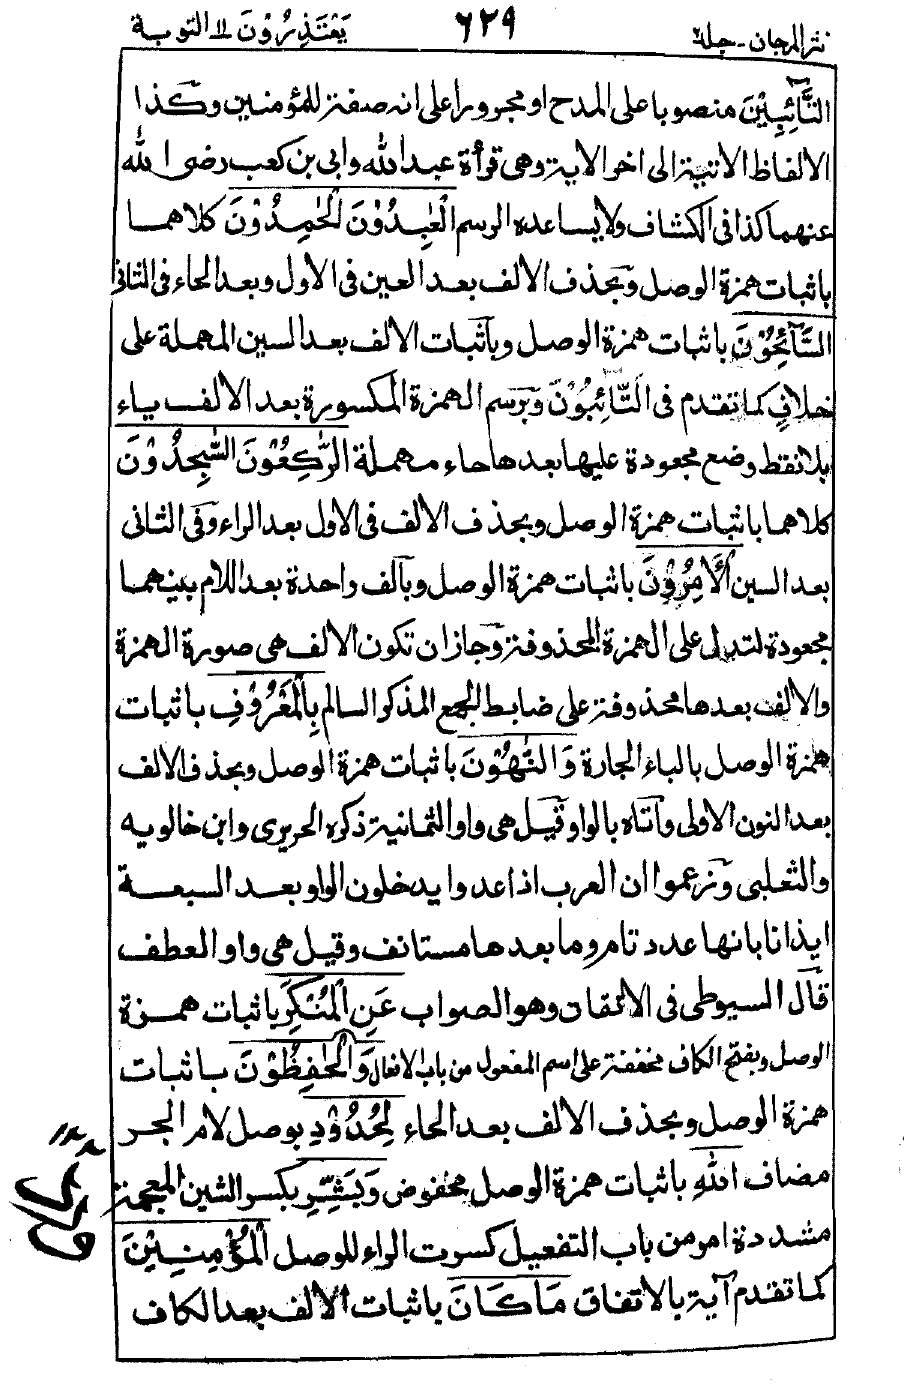 نثر المرجان - جلد٢ ٦٢٩ يَعْتَذِرُوْنَ ١١ التوبة
التَّآئِبِيْنَ منصوبا على المدح او مجرورا على انه صفة للمؤمنين وكذا
الالفاظ الاتية الى اخر الاية وهى قرأة عبد الله وابى بن كعب رضى الله
عنهما كذا فى الكشاف ولا يساعده الرسم الْعٰبِدُوْنَ الْحٰمِدُوْنَ كلاهما
باثبات همزة الوصل وبحذف الالف بعد العين فى الاول وبعد الحاء فى الثانى
السَّآئِحُوْنَ باثبات همزة الوصل وباثبات الالف بعد السين المهملة على
خلافٍ كما تقدم فى التَّآئِبُوْنَ وبرسم الهمزة المكسورة بعد الالف ياء
بلا نقط وضع مجعودة عليها بعدها حاء مهملة الرّٰكِعُوْنَ السّٰجِدُوْنَ
كلاهما باثبات همزة الوصل وبحذف الالف فى الاول بعد الراء وفى الثانى
بعد السين الْاٰمِرُوْنَ باثبات همزة الوصل وبالف واحدة بعد اللام بينهما
مجعودة لتدل على الهمزة المحذوفة وجاز ان تكون الالف هى صورة الهمزة
والالف بعدها محذوفة على ضابط الجمع المذكر السالم بِالْمَعْرُوْفِ باثبات
همزة الوصل بالباء الجارة وَالنّٰهُوْنَ باثبات همزة الوصل وبحذف الالف
بعد النون الاولى واتاه بالواو قيل هى واو الثمانية ذكره الحريرى وابن خالويه
والثعلبى وزعموا ان العرب اذا عدوا يدخلون الواو بعد السبعة
ايذانا بانها عدد تام وما بعدها مستانف وقيل هى واو العطف
قال السيوطى فى الاتقان وهو الصواب عَنِ الْمُنْكَرِ باثبات همزة
الوصل وبفتح الكاف مخففة على اسم المفعول من باب الافعال وَالْحٰفِظُوْنَ باثبات
همزة الوصل وبحذف الالف بعد الحاء لِحُدُوْدِ بوصل لام الجر
مضاف اللّٰهِ باثبات همزة الوصل مخفوض وَبَشِّرِ بكسر الشين المعجمة
مشددة امر من باب التفعيل كسرت الراء للوصل الْمُؤْمِنِيْنَ
كما تقدم آية بالاتفاق مَا كَانَ باثبات الالف بعد الكاف